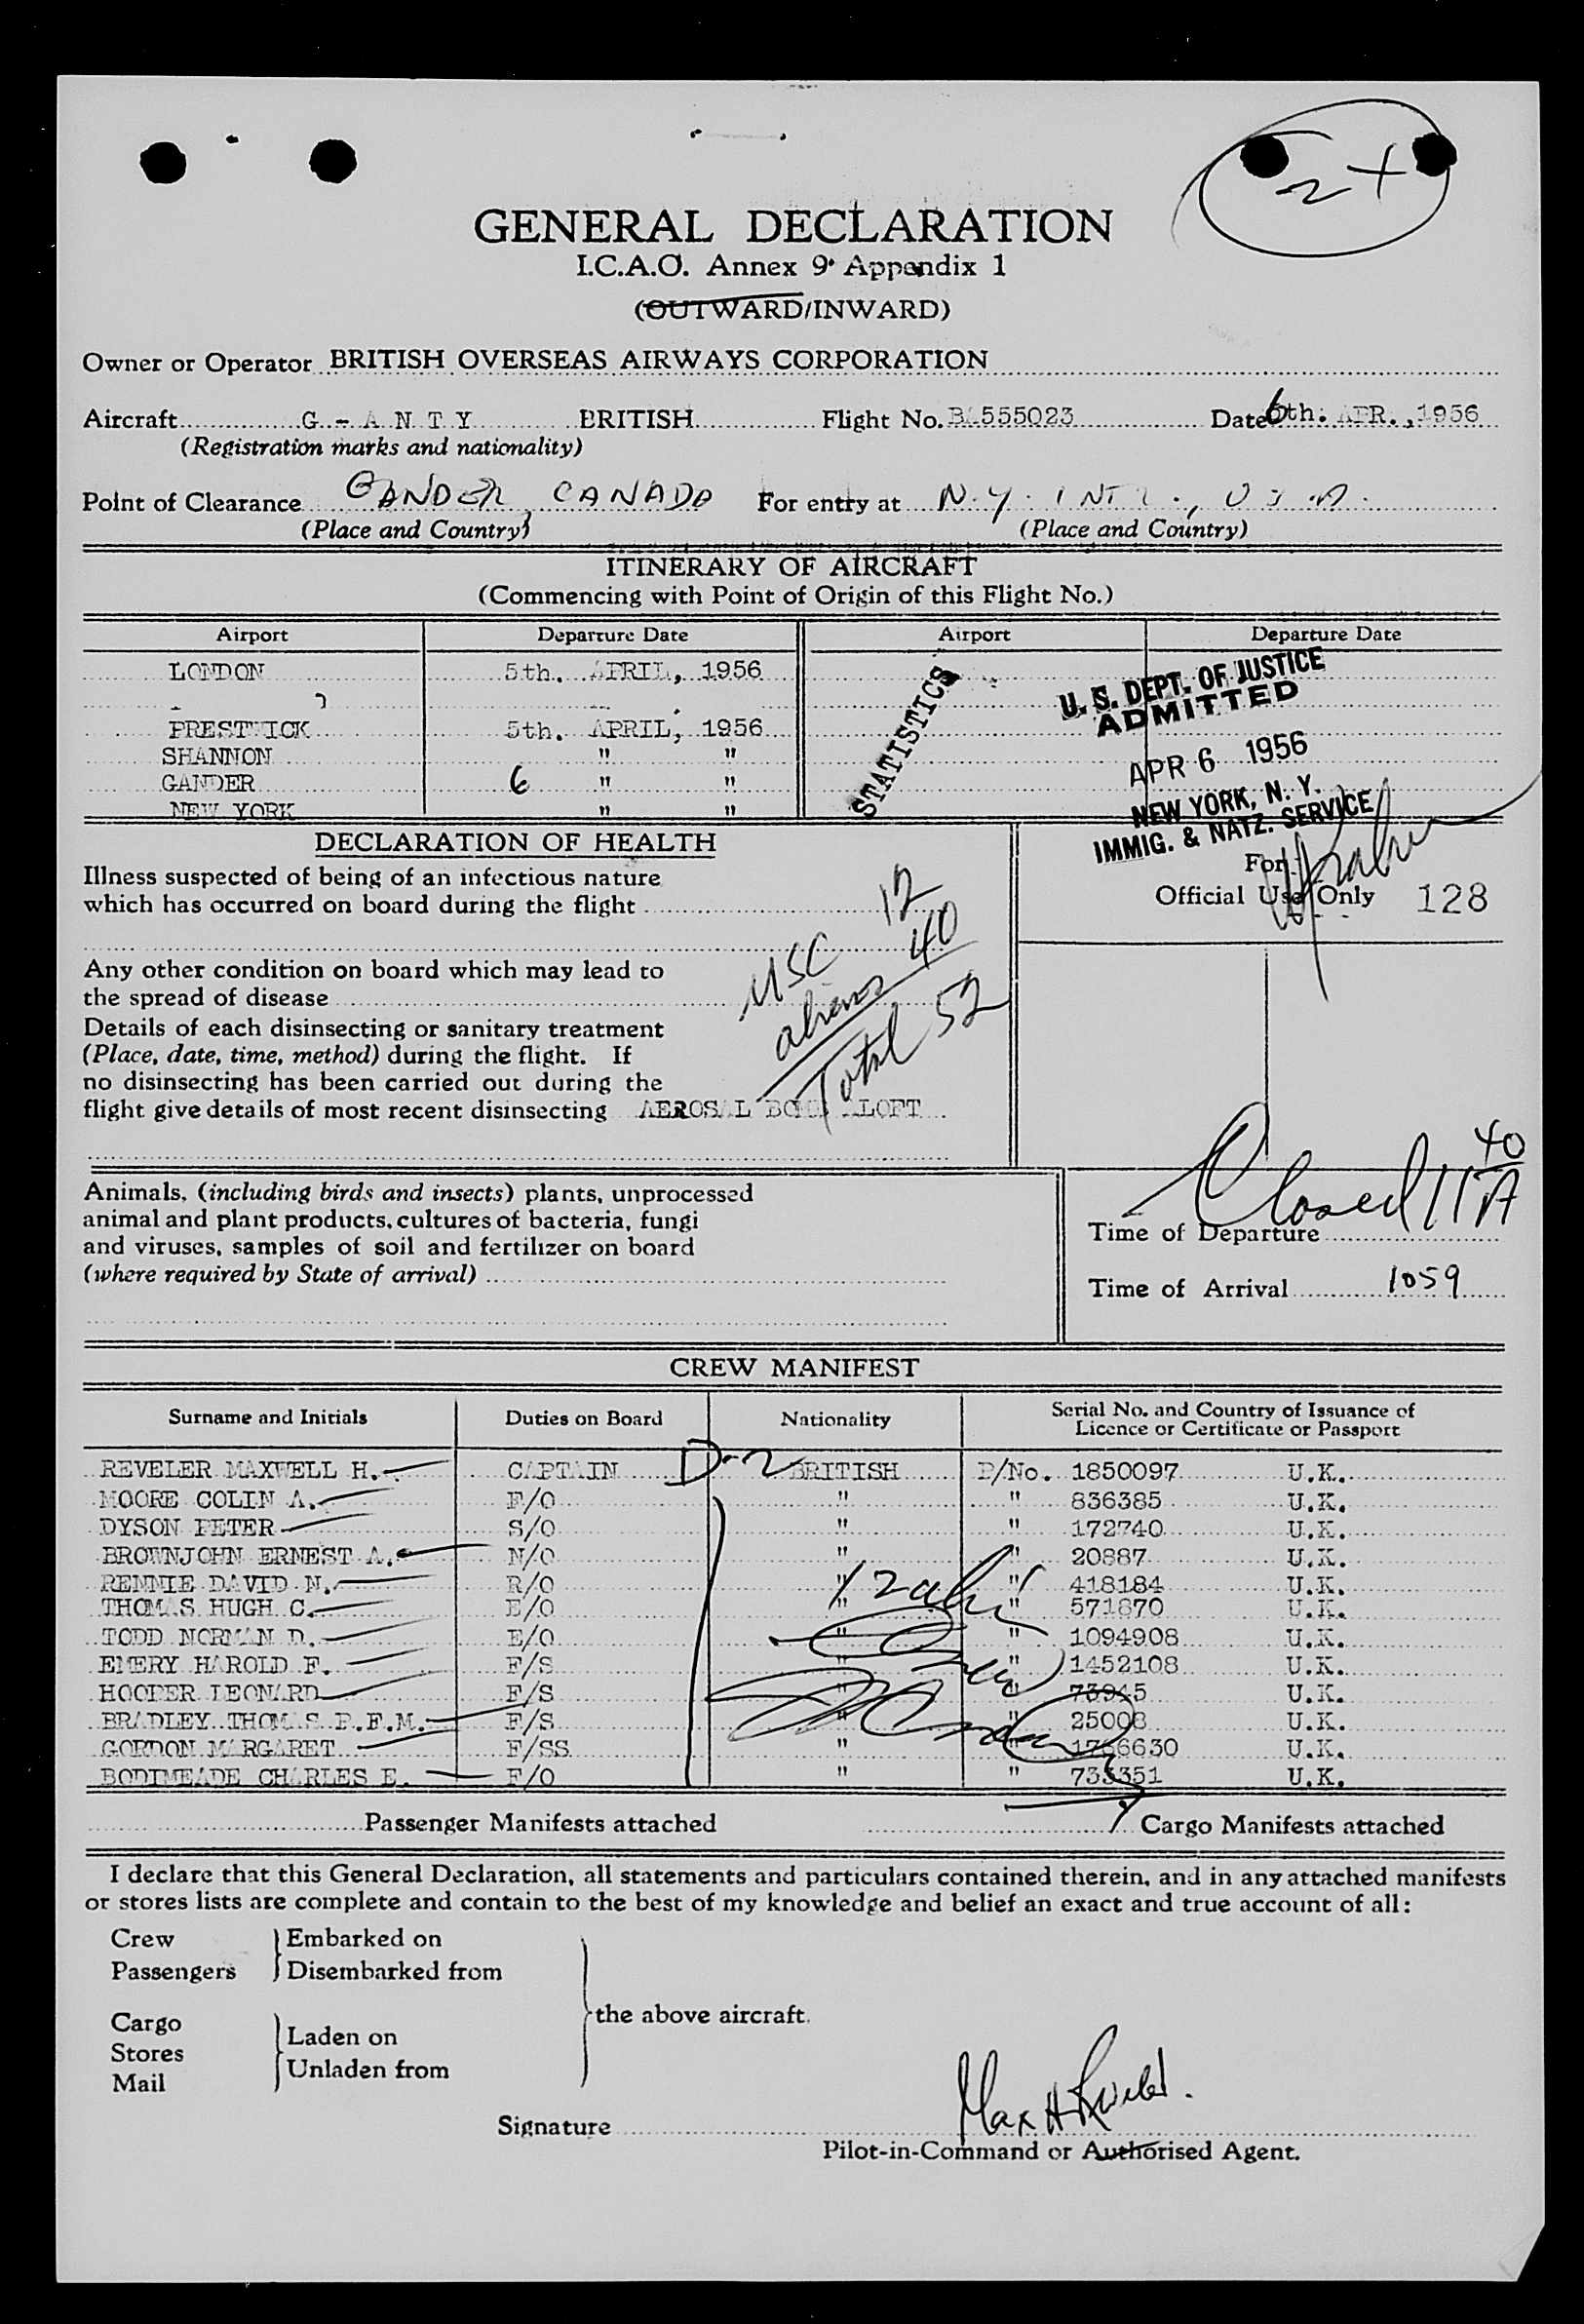 2 +
GENERAL DECLARATION
I.C.A.O. Annex 9 Appendix 1
(OUTWARD/INWARD)
Owner or Operator BRITISH OVERSEAS AIRWAYS CORPORATION
Aircraft G - A N T Y BRITISH Flight No. BA555023 Date 6th. APR., 1956
(Registration marks and nationality)
Point of Clearance GANDER, CANADA For entry at N.Y. INTL., U.S.A.
(Place and Country) (Place and Country)
ITINERARY OF AIRCRAFT
(Commencing with Point of Origin of this Flight No.)
Airport Departure Date Airport Departure Date
LONDON 5th. APRIL, 1956
PRESTWICK 5th. APRIL, 1956
SHANNON " "
GANDER 6 " "
NEW YORK " "
STATISTICS
U. S. DEPT. OF JUSTICE
ADMITTED
APR 6 1956
NEW YORK, N. Y.
IMMIG. & NATZ. SERVICE
DECLARATION OF HEALTH
Illness suspected of being of an infectious nature
which has occurred on board during the flight
For
Official Use Only 128
USC 12
aliens 40
Total 52
Any other condition on board which may lead to
the spread of disease
Details of each disinsecting or sanitary treatment
(Place, date, time, method) during the flight. If
no disinsecting has been carried out during the
flight give details of most recent disinsecting AEROSAL BOMB ALOFT
Animals, (including birds and insects) plants, unprocessed
animal and plant products, cultures of bacteria, fungi
and viruses, samples of soil and fertilizer on board
(where required by State of arrival)
Closed 11 40 A
Time of Departure
Time of Arrival 1059
CREW MANIFEST
Surname and Initials Duties on Board Nationality Serial No. and Country of Issuance of
Licence or Certificate or Passport
REVELER MAXWELL H. CAPTAIN D-2 BRITISH P/No. 1850097 U.K.
MOORE COLIN A. F/O " " 836385 U.K.
DYSON PETER S/O " " 172740 U.K.
BROWNJOHN ERNEST A. N/O " " 20887 U.K.
RENNIE DAVID N. R/O " " 418184 U.K.
THOMAS HUGH C. E/O " " 571870 U.K.
TODD NORMAN D. E/O " " 1094908 U.K.
EMERY HAROLD F. F/S " " 1452108 U.K.
HOOPER LEONARD F/S " " 73945 U.K.
BRADLEY THOMAS P.F.M. F/S " " 25008 U.K.
GORDON MARGARET F/SS " " 1766630 U.K.
BODIMEADE CHARLES E. F/O " " 733351 U.K.
Passenger Manifests attached Cargo Manifests attached
I declare that this General Declaration, all statements and particulars contained therein, and in any attached manifests
or stores lists are complete and contain to the best of my knowledge and belief an exact and true account of all:
Crew Embarked on
Passengers Disembarked from
the above aircraft.
Cargo
Stores Laden on
Mail Unladen from
Signature Max H Reveler
Pilot-in-Command or Authorised Agent.